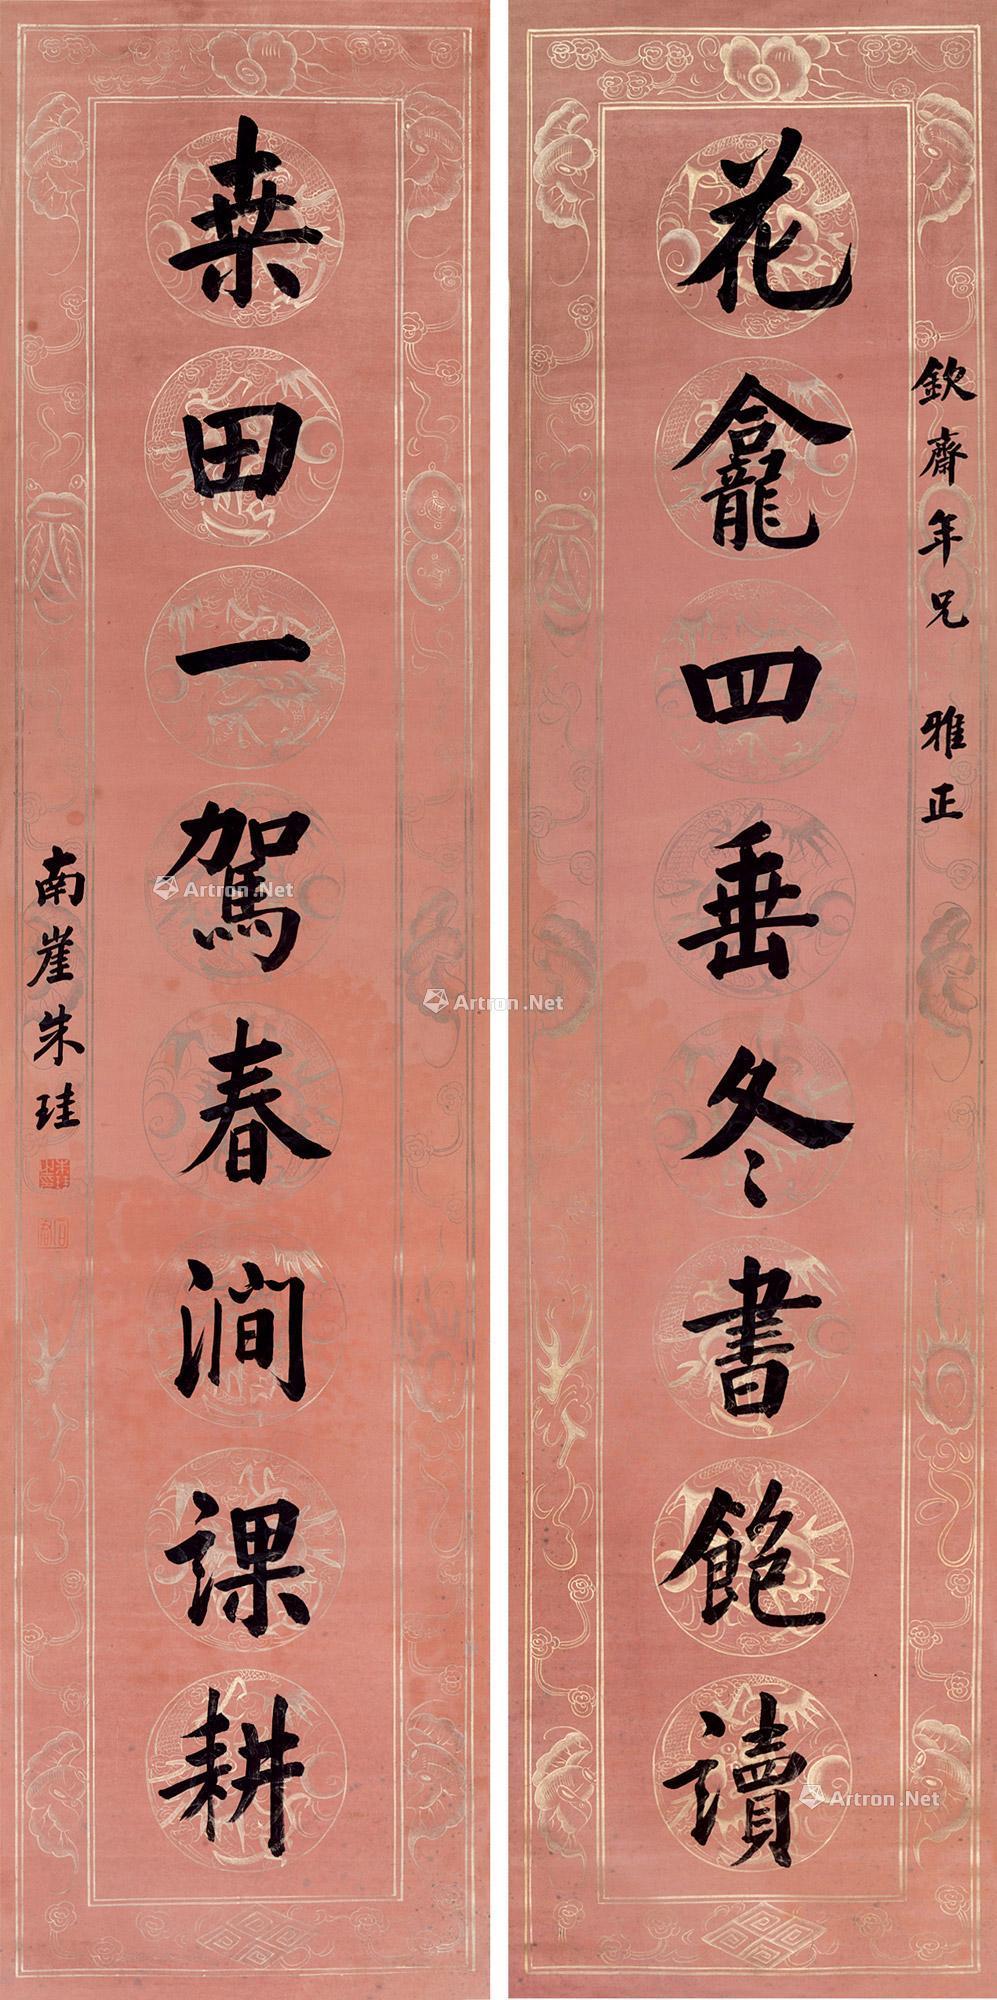 欽齋年兄 雅正
花龕四垂冬書飽讀
桒田一駕春澗課耕
南崖朱珪
Artron.Net
Artron.Net
Artron.Net